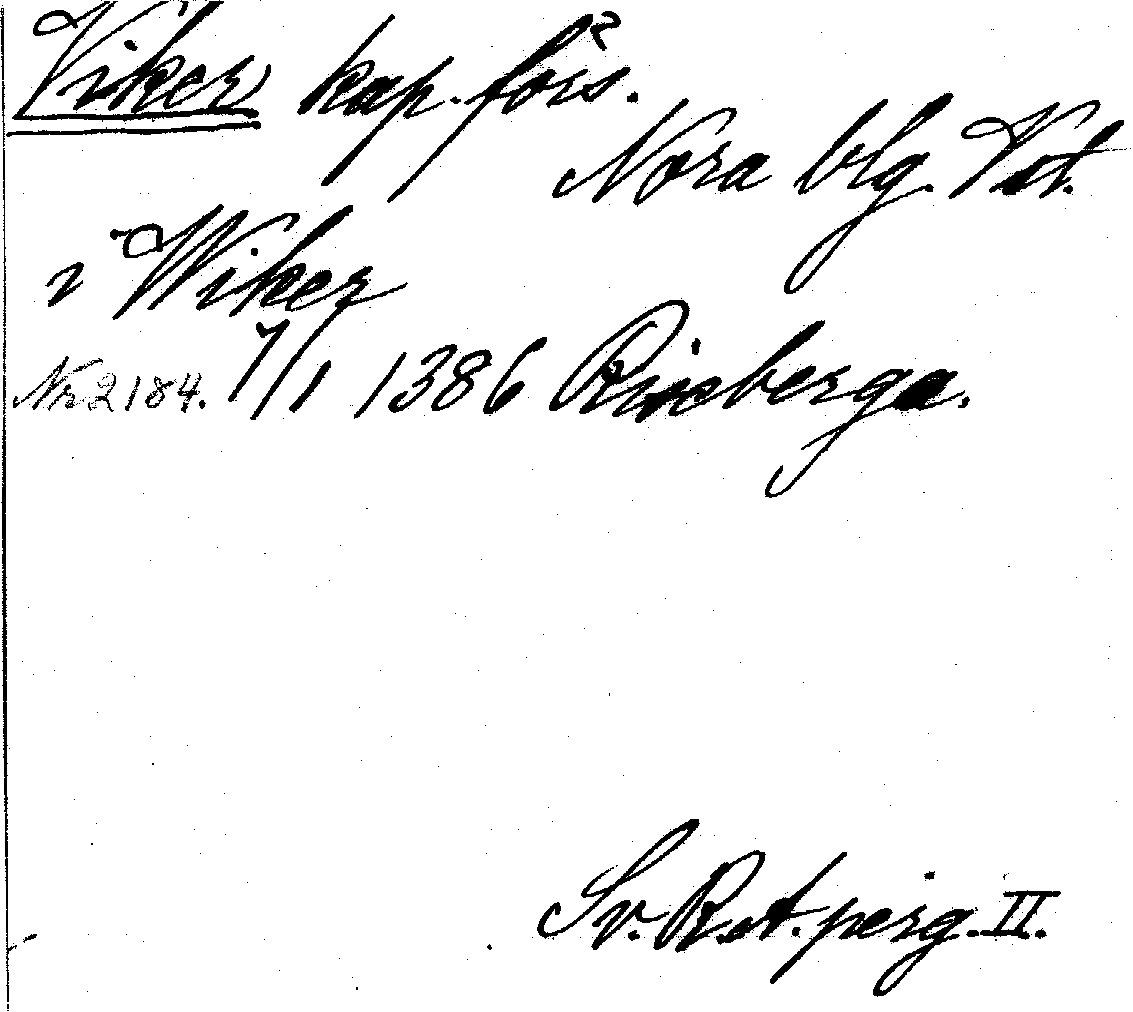 Viker kap. förs.
Nora blg. Vst.
i Wiker
Nr 2184. 7/1 1386 Riseberga.
Sv. R.A. perg. II.